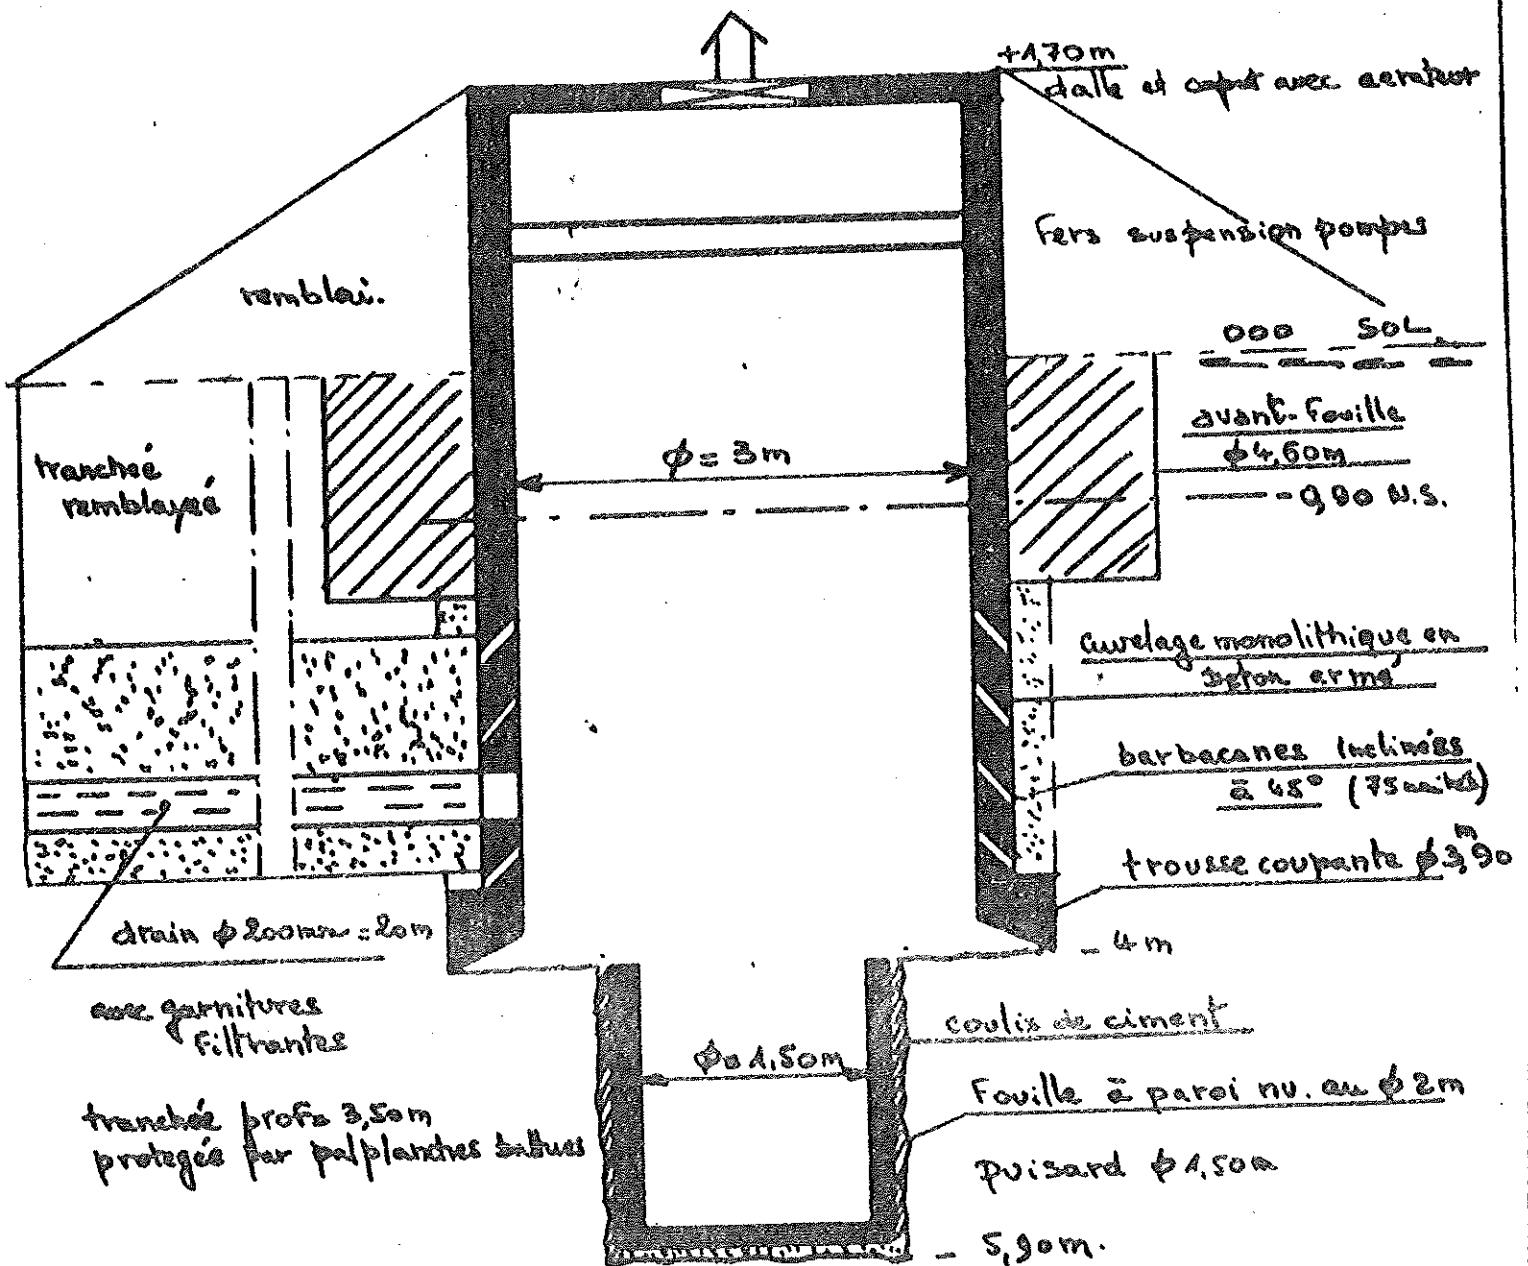 +1,70m
dalle et capot avec aerateur
Fers suspension pompes
remblai.
000 SOL
avant-Fouille
ϕ4,60m
-0,90 N.S.
tranchée
remblayeé
ϕ= 3m
cuvelage monolithique en
beton armé
barbacanes Inclinées
à 45° (75 unités)
trousse coupante ϕ3,90
m
- 4m
drain ϕ200mm = 20m
avec garnitures
Filtrantes
coulis de ciment
ϕ= 1,50m
Fouille à paroi nu. au ϕ2m
tranchée profs 3,50m
protegée par palplanches battues
puisard ϕ1,50m
- 5,90m.